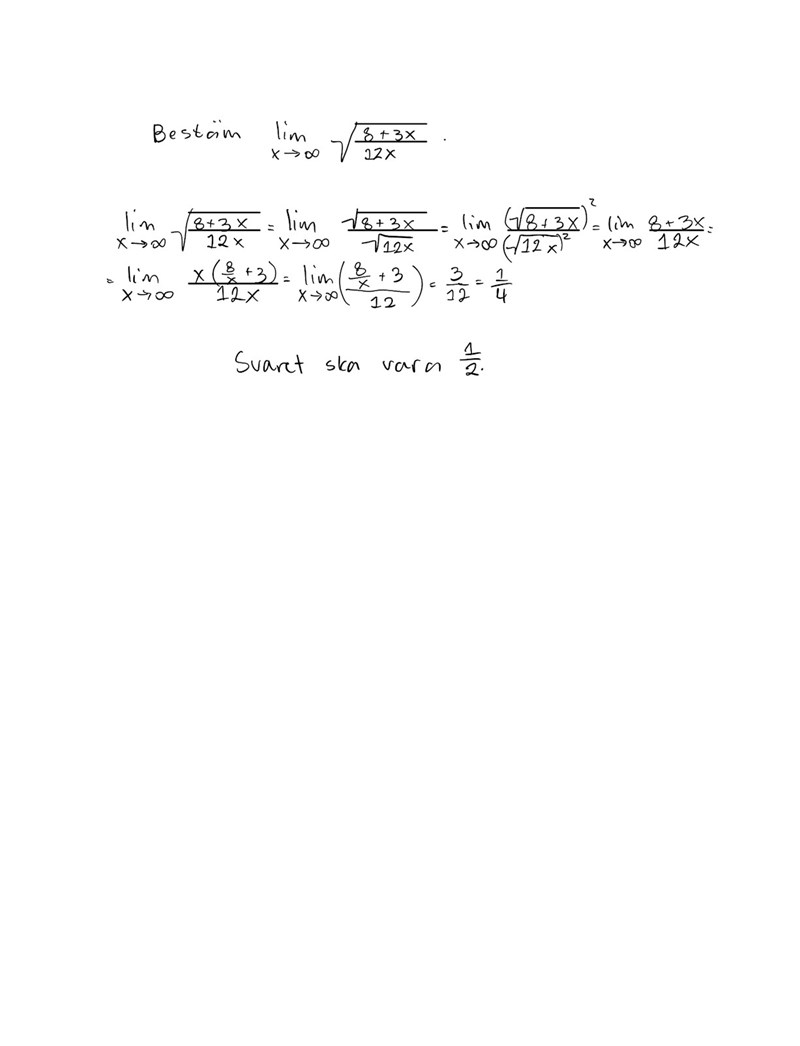 Bestäm lim x→∞ √((8+3x)/(12x)) .
lim x→∞ √((8+3x)/(12x)) = lim x→∞ √(8+3x)/√(12x) = lim x→∞ (√(8+3x))²/(√(12x))² = lim x→∞ (8+3x)/(12x) =
= lim x→∞ x(8/x +3)/(12x) = lim x→∞ ((8/x +3)/12) = 3/12 = 1/4
Svaret ska vara 1/2.